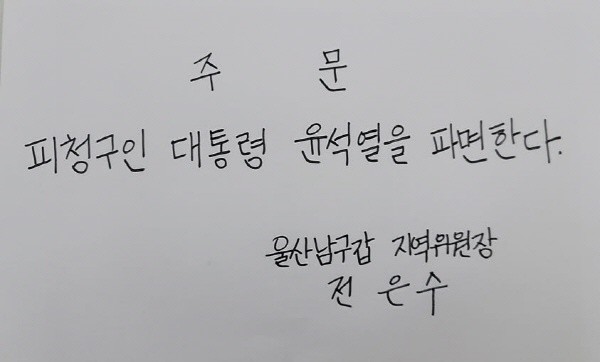 주 문
피청구인 대통령 윤석열을 파면한다.
울산남구갑 지역위원장
전 은 수